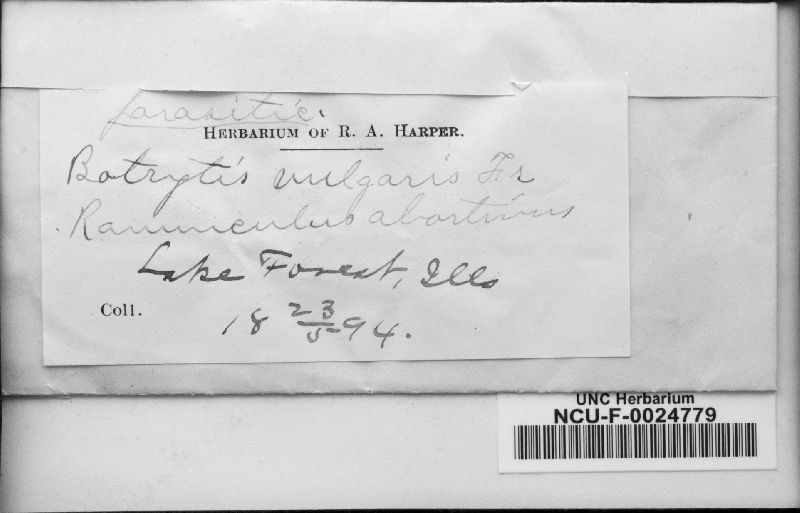 parasitic.
HERBARIUM OF R. A. HARPER.
Botrytis vulgaris Fr
Ranunculus abortivus
Lake Forest, Ills
Coll.
18 23/5 94.
UNC Herbarium
NCU-F-0024779